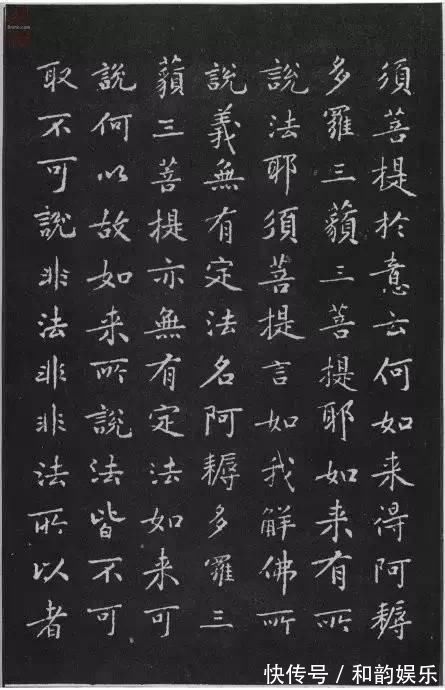 須菩提於意云何如来得阿耨
多羅三藐三菩提耶如来有所
說法耶須菩提言如我解佛所
說義無有定法名阿耨多羅三
藐三菩提亦無有定法如来可
說何以故如来所說法皆不可
取不可說非法非非法所以者
快传号 / 和韵娱乐